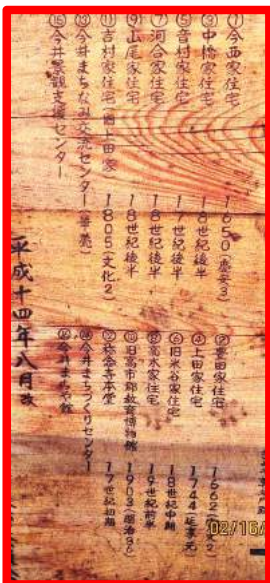 ①今西家住宅 1650(慶安3)
③中橋家住宅 18世紀後半
⑤音村家住宅 17世紀後半
⑦河合家住宅 18世紀後半
⑨山尾家住宅 18世紀後半
⑪吉村家住宅(旧上田家) 1805(文化2)
⑬今井まちなみ交流センター(華甍)
⑮今井景観支援センター
②豊田家住宅 1662(2)
④上田家住宅 1744(延享元)
⑥旧米谷家住宅 18世紀中期
⑧高木家住宅 19世紀前半
⑩旧高市郡教育博物館 1903(明治36)
⑫称念寺本堂 17世紀初期
⑭今井まちづくりセンター
⑯今井まちや館
平成十四年八月改
02/16/